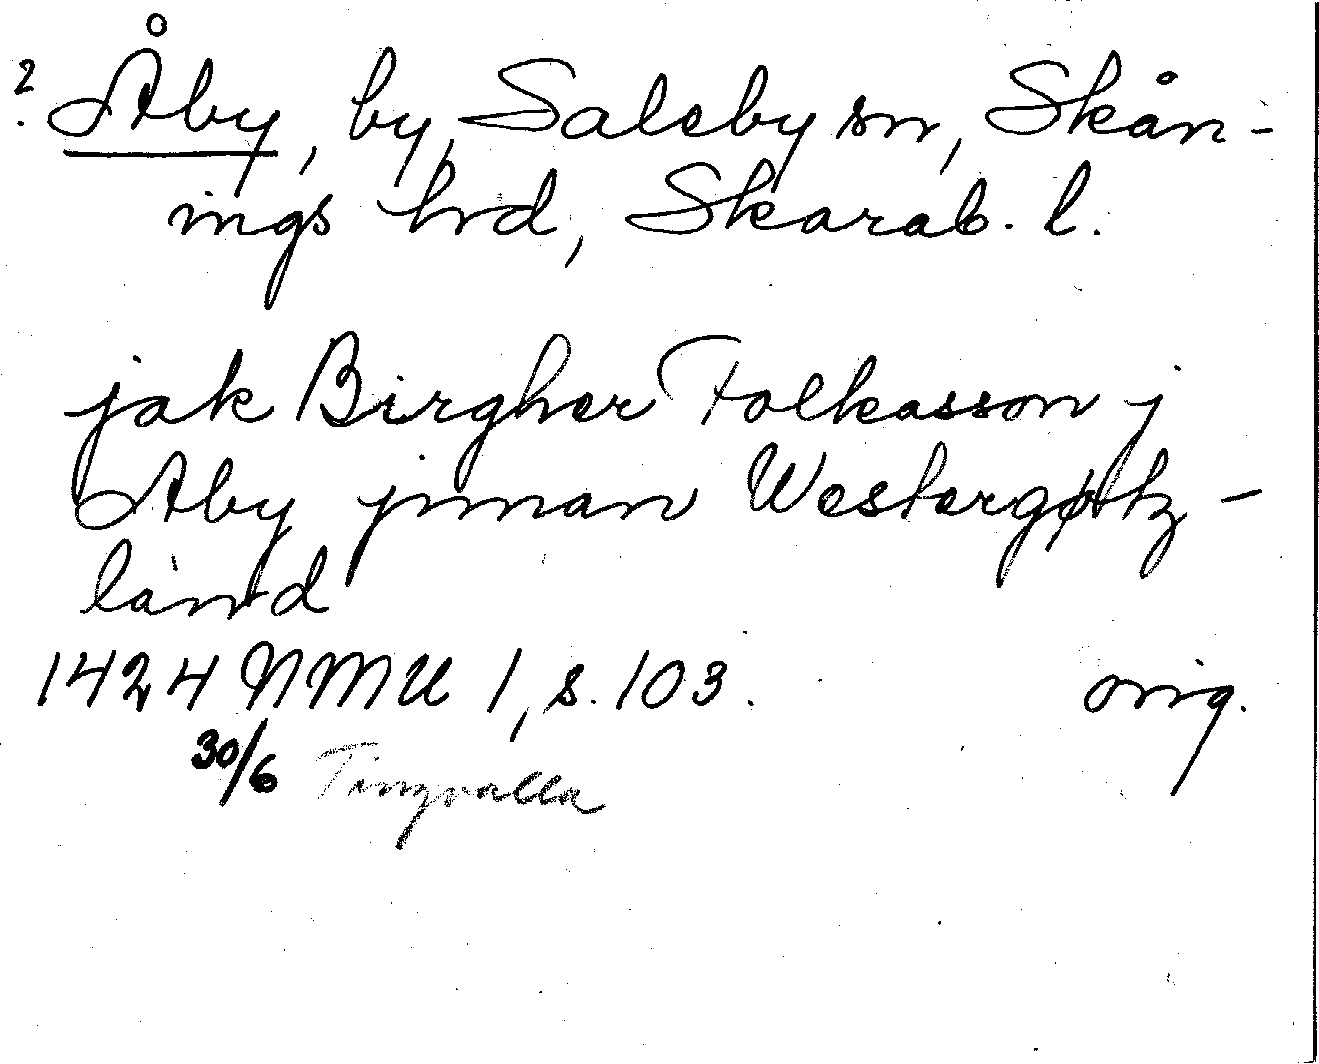 ? Åby, by, Saleby sn, Skån-
ings hrd, Skarab. l.
jak Birgher Folkasson j
Aby jnnan Westergøtz-
land
1424 NMU 1, s. 103. orig.
30/6 Tingvalla